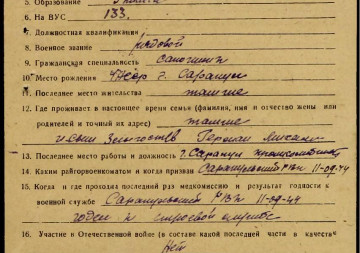 5. Образование
6. На ВУС 133.
7. Должностная квалификация
8. Военное звание рядовой
9. Гражданская специальность сапожник
10. Место рождения УАССР г. Сарапул
11. Последнее место жительства там же
12. Где проживает в настоящее время семья (фамилия, имя и отчество жены или
родителей и точный их адрес) там же
13. Последнее место работы и должность г. Сарапул
14. Каким райгорвоенкоматом и когда призван Сарапульский РВК 11-09-44
15. Когда и где проходил последний раз медкомиссию и результат годности к
военной службе Сарапульский РВК 11-09-44
годен к строевой службе
16. Участие в Отечественной войне (в составе какой последней части в качестве
Нет